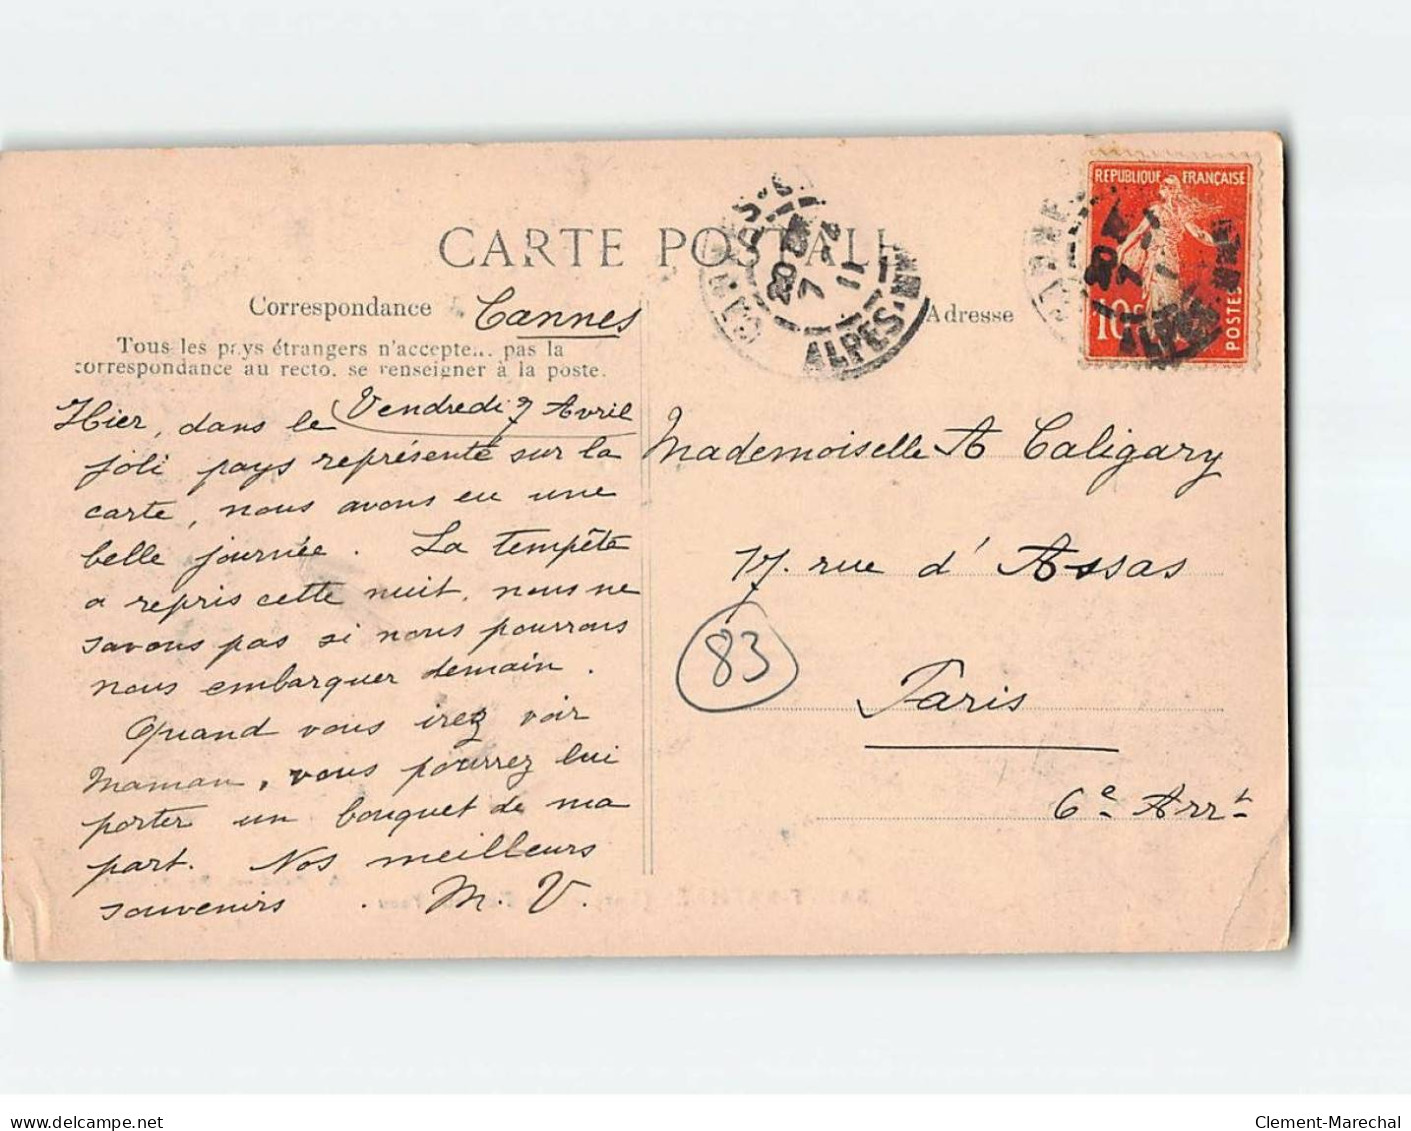 CARTE POSTALE
Correspondance
Cannes
Tous les pays étrangers n'accepte... pas la
correspondance au recto, se renseigner à la poste.
Vendredi 7 Avril
Hier, dans le
joli pays représenté sur la
carte, nous avons eu une
belle journée. La tempête
a repris cette nuit, nous ne
savons pas si nous pourrons
nous embarquer demain.
Quand vous irez voir
Maman, vous pourrez lui
porter un bouquet de ma
part. Nos meilleurs
souvenirs. M. V.
Adresse
Mademoiselle A Caligary
17. rue d'Assas
Paris
6e Arrt
83
REPUBLIQUE FRANÇAISE
10c
POSTES
CANNES
7 4
11
ALPES-
ALPES
delcampe.net
Clement-Marechal